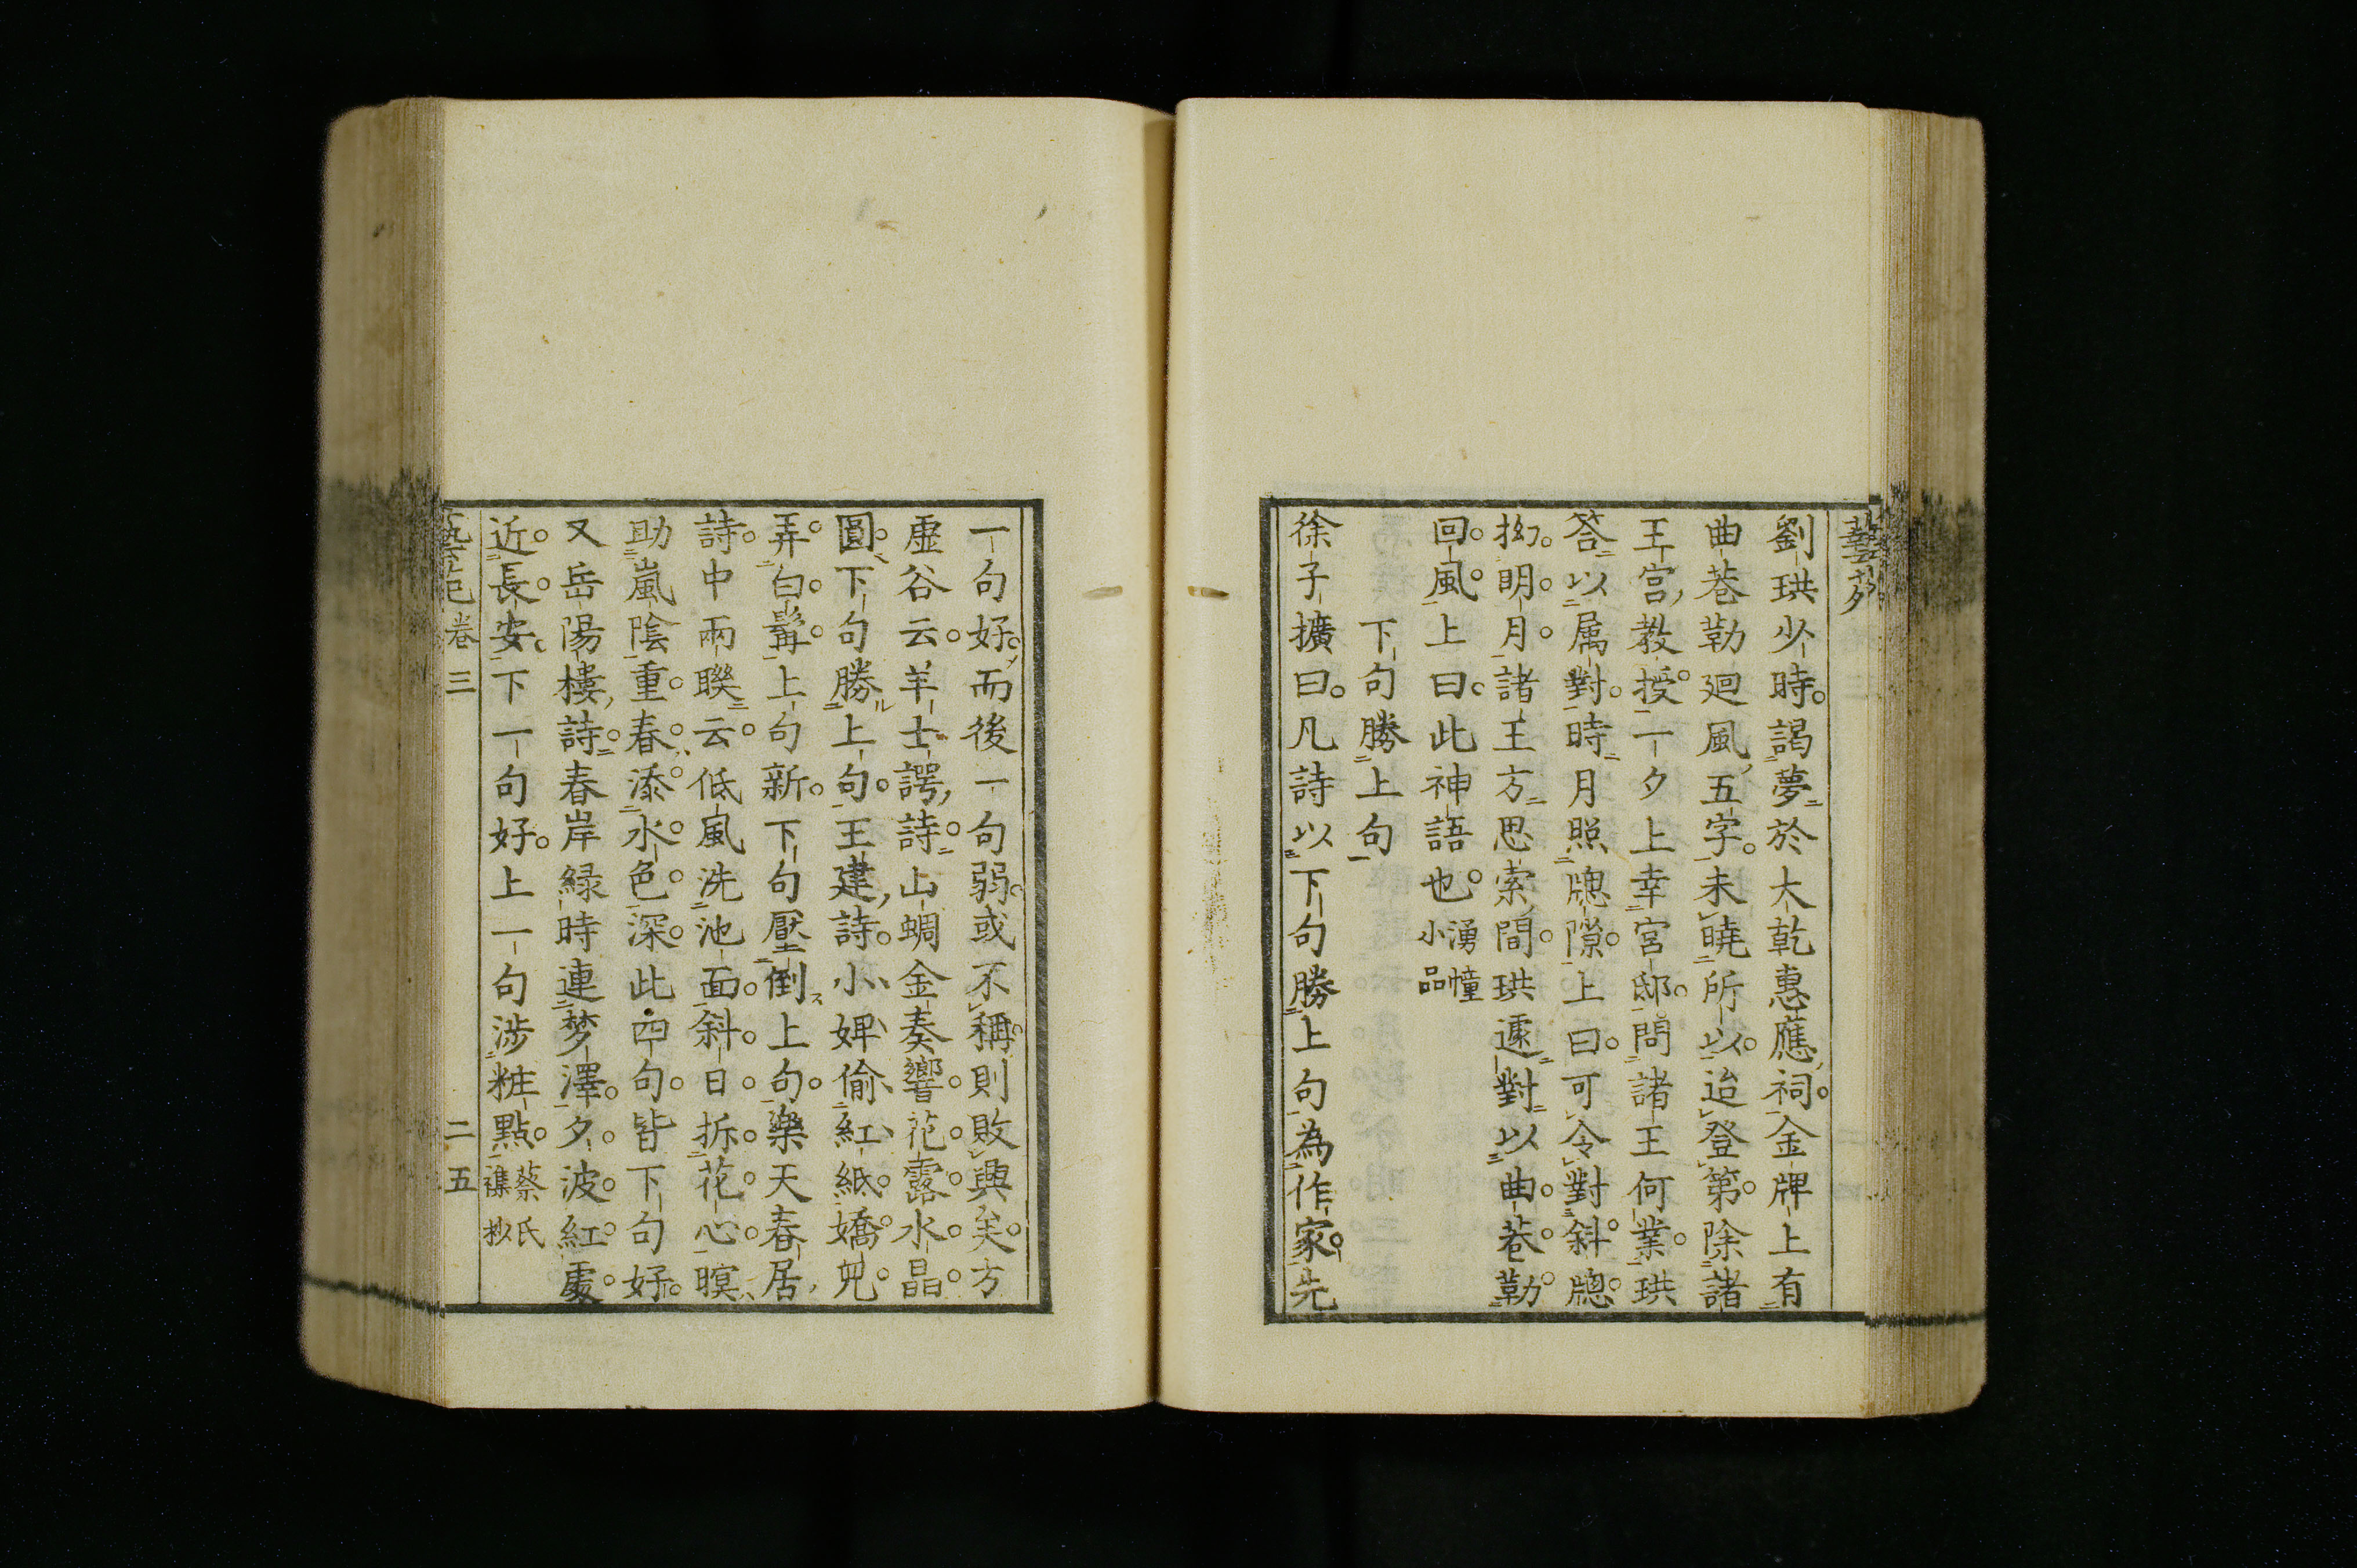 劉珙少時。謁夢於大乾惠應祠。金牌上有
曲巷勒迴風五字。未曉所以。迨登第。除諸
王宮教授。一夕上幸宮邸。問諸王何業。珙
答以属對。時月照牕隙。上曰。可令對斜牕。
拗。明。月。諸王方思索間。珙遽對以曲。巷。勒。
回。風。上曰。此神語也。湧幢小品
下句勝上句
徐子擴曰。凡詩以下句勝上句為作家。先
一句好。而後一句弱。或不稱。則敗興矣。方
虛谷云。羊士諤詩。山蜩金奏響。花。露。水。晶。
圓。下句勝上句。王建詩。小婢偷紅紙。嬌。兒。
弄。白。髯。上句新。下句壓倒上句。樂天春居
詩。中兩聯云。低風洗池面。斜。日。拆。花。心。暝
助嵐陰重。春。添。水。色。深。此四句。皆下句好。
又岳陽樓詩。春岸綠時連梦澤。夕。波。紅。處。
近。長。安。下一句好。上一句涉粧點。蔡氏襍抄
卷三 二五